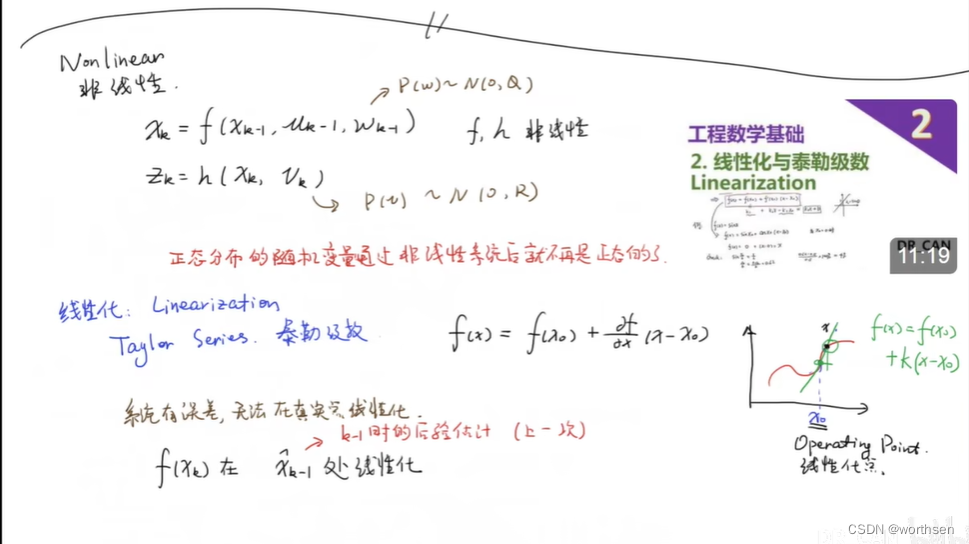 Nonlinear
非线性.
P(w)~N(0,Q)
x_k = f(x_{k-1}, u_{k-1}, w_{k-1})
f, h 非线性
z_k = h(x_k, v_k)
P(v) ~ N(0,R)
正态分布的随机变量通过非线性系统后就不再是正态的了.
线性化: Linearization
Taylor Series. 泰勒级数
f(x) = f(x_0) + ∂f/∂x (x-x_0)
系统有误差, 无法在真实点线性化.
k-1时的后验估计 (上一次)
f(x_k) 在 x̂_{k-1} 处线性化
2
工程数学基础
2. 线性化与泰勒级数
Linearization
DR_CAN
11:19
x
f(x)=f(x_0)
+k(x-x_0)
x_0
Operating Point.
线性化点.
CSDN @worthsen